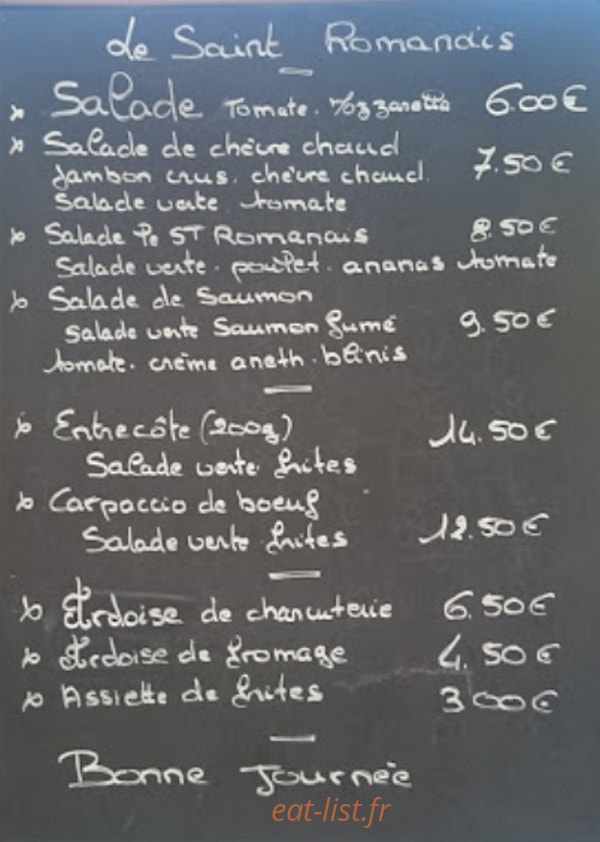 Le Saint Romanais
Salade Tomate. Mozzarella 6.00€
Salade de chèvre chaud
Jambon crus. chèvre chaud. 7.50€
Salade verte tomate
Salade le ST Romanais 8.50€
Salade verte. poulet. ananas tomate
Salade de Saumon
Salade verte Saumon fumé 9.50€
tomate. crème aneth. blinis
Entrecôte (200g) 14.50€
Salade verte frites
Carpaccio de boeuf
Salade verte frites 12.50€
Ardoise de charcuterie 6.50€
Ardoise de fromage 4.50€
Assiette de frites 3 00€
Bonne Journée
eat-list.fr